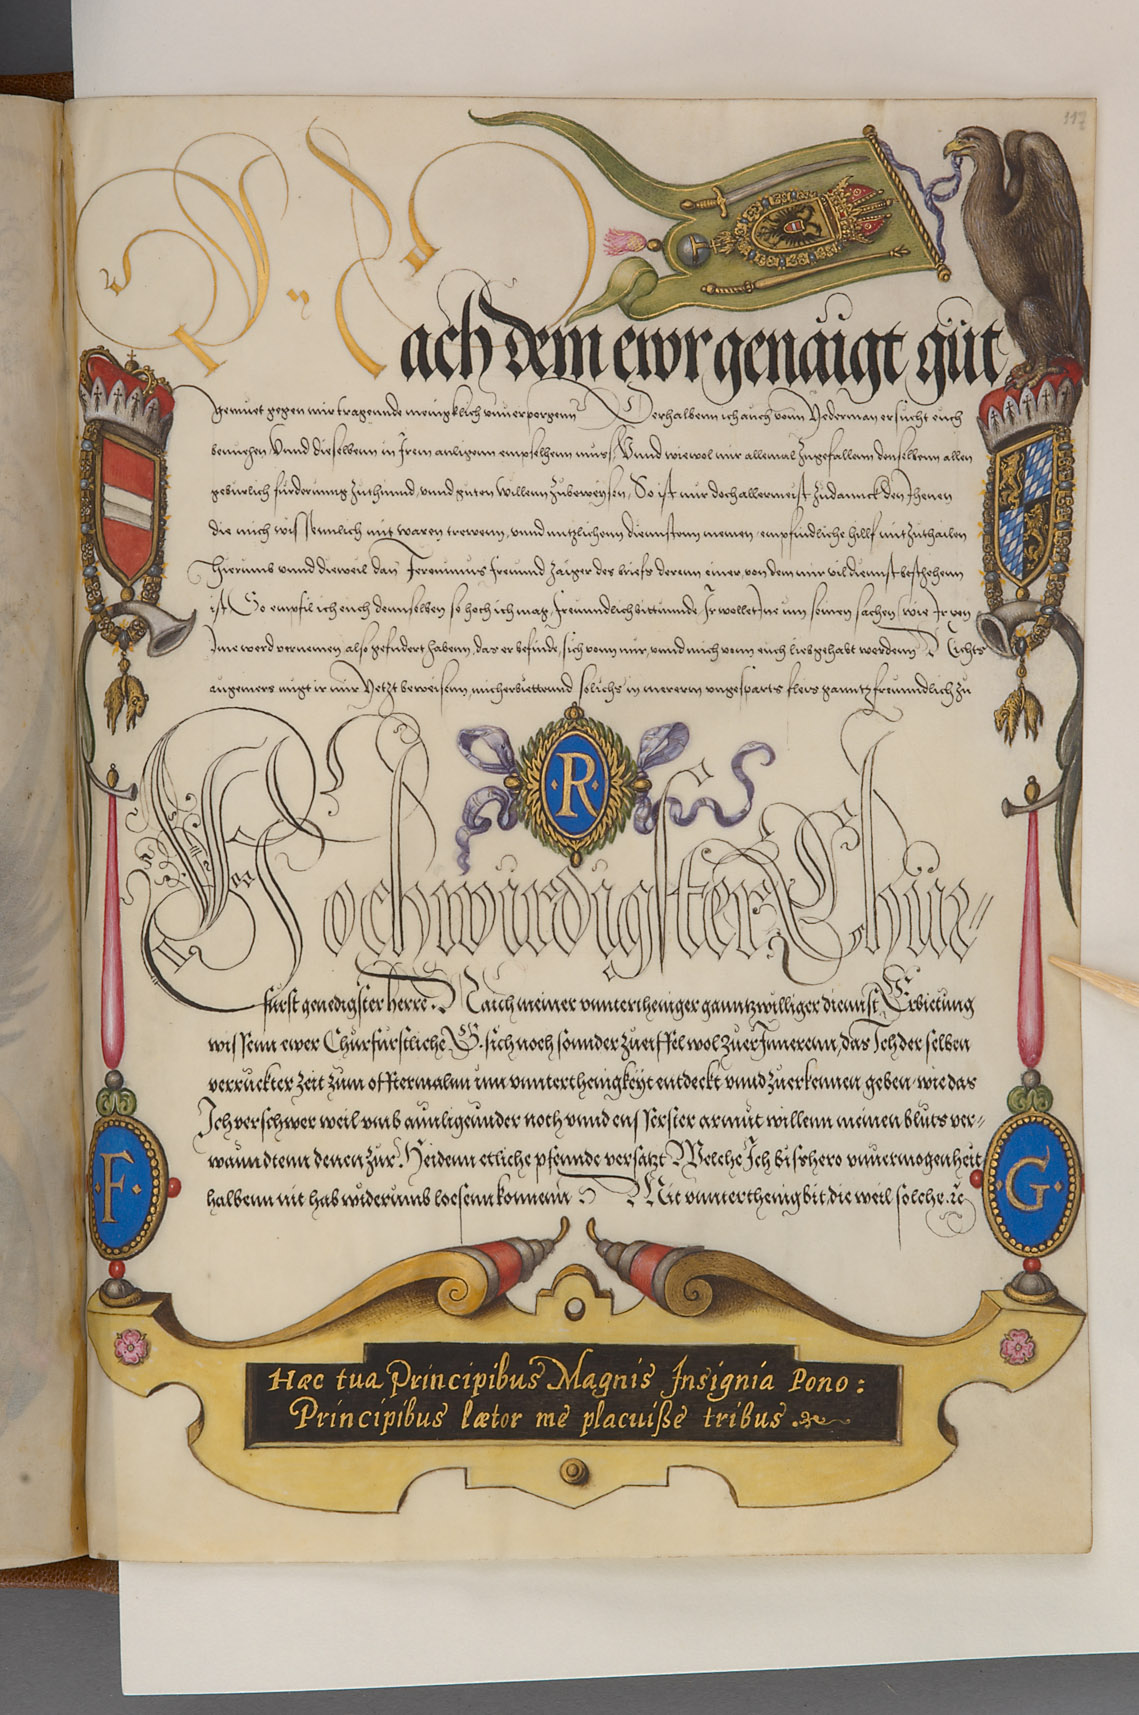 117
Nach dem ewr genaigt güt
gemuet gegen mir tragennde meingklich vnuerporgenn Derhalbenn ich auch vonn Yederman ersucht euch
bemuhen Vnnd dieselbenn in Irem anligenn empfelhenn muess Vnnd wiewol mir allemal zugefallenn denselbenn allen
geburlich furderunng zuthunnd vnnd guten willenn zubeweysen So ist mir doch allermeist zudannck den Jhenen
die mich wissenntlich mit waren trewenn vnnd nutzlichenn diennstenn meinen empfindliche hillf mitzuthailen
Hierumb vnnd dieweil dan Ieronimus freunnd zaiger des briefs derenn einer, von dem mir vil diennst beschehenn
ist So empfil ich euch dennselben so hoch ich mag freunndlich bittunde Ir wollet Ine inn seinen sachen wie Ir von
Ime werd vernemen also gefudert habenn, das er befinde, sich vonn mir, vnnd mich vonn euch lieb gehabt werdenn Nichts
angemers mugt ir mir Yetzt beweisenn, mich erbiettennd solichs in mererm vngesparts fleis ganntz freunndlich zu
R
Hochwürdigster Chür-
fürst genedigster herre. Nach meiner vnntertheniger ganntzwilliger diennst Erbietung
wissenn ewer Churfurstliche G. sich noch sonnder zweiffel wol zuer Innerenn, das Ich der selben
verruckter zeit zum offtermalnn inn vnnterthenigkeyt entdeckt vnnd zuerkennen geben wie das
Ich verschwer weil vmb annligennder noth vnnd eusserster armut willenn meinen bluts ver-
wanndtenn denen zur Heidenn etliche pfennde versatzt Welche Ich bisshero vnuermogenheit
halbenn nit hab widerumb loesenn konnenn Mit vnnterthenig bit, die weil solche.
F
G
Hæc tua Principibus Magnis Insignia Pono:
Principibus lætor me placuiße tribus.